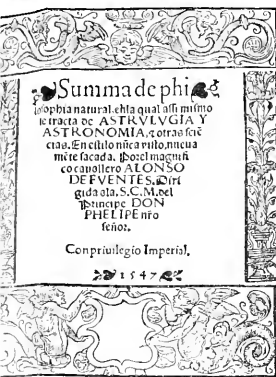 Summa de phi
losophia natural. enla qual assi mismo
se tracta de ASTRVLVGIA Y
ASTRONOMIA, z otras sciē
cias. En estilo nūca visto, nueua
mēte sacada. Por el magnifi
co cauallero ALONSO
DE FVENTES. Diri
gida ala. S.C.M. del
Principe DON
PHELIPE nr̄o
señor.
Con priuilegio Imperial.
1547